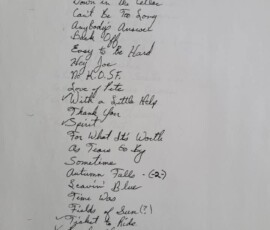 Down in the Cellar
Can't Be So Long
Anybody's Answer
Back Off
Easy to Be Hard
Hey Joe
No H.O.S.F.
Love of Pete
✓With a Little Help
Thank You
✓Spirit
For What It's Worth
As Tears Go By
Sometime
Autumn Falls - (-2-)
Leavin' Blue
Time Was
Fields of Sun (?)
✓Ticket to Ride